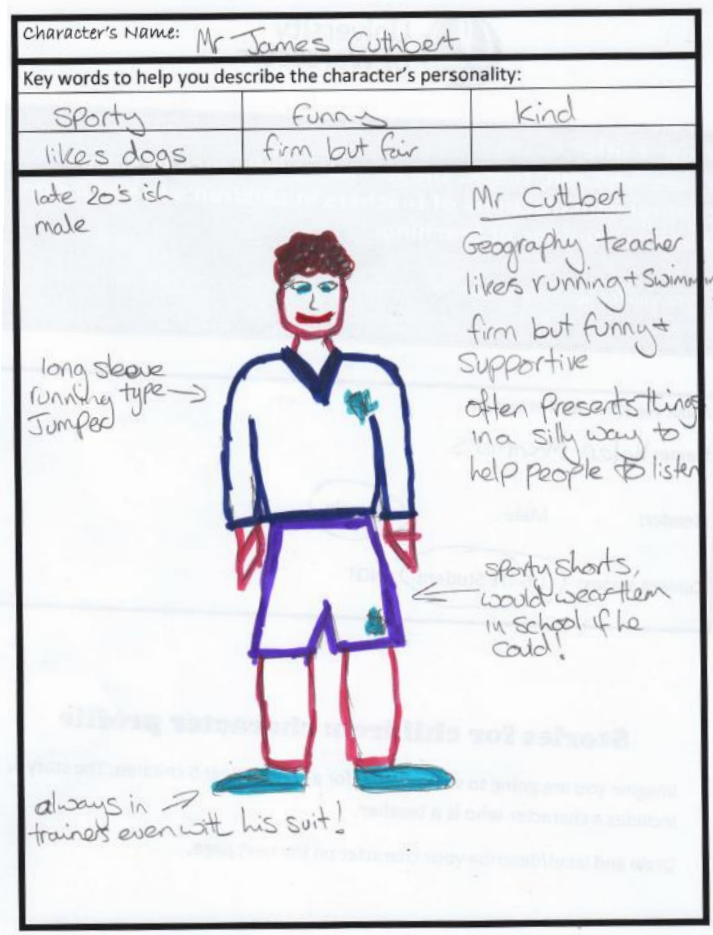 Character's Name: Mr James Cuthbert
Key words to help you describe the character's personality:
Sporty funny kind
likes dogs firm but fair
late 20's ish
male
Mr Cuthbert
Geography teacher
likes running + Swimming
firm but funny +
Supportive
often presents things
in a silly way to
help people to listen
long sleeve
running type →
Jumped
← sporty shorts,
would wear them
in school if he
could!
always in →
trainers even with his suit!
Stories for children: character profile